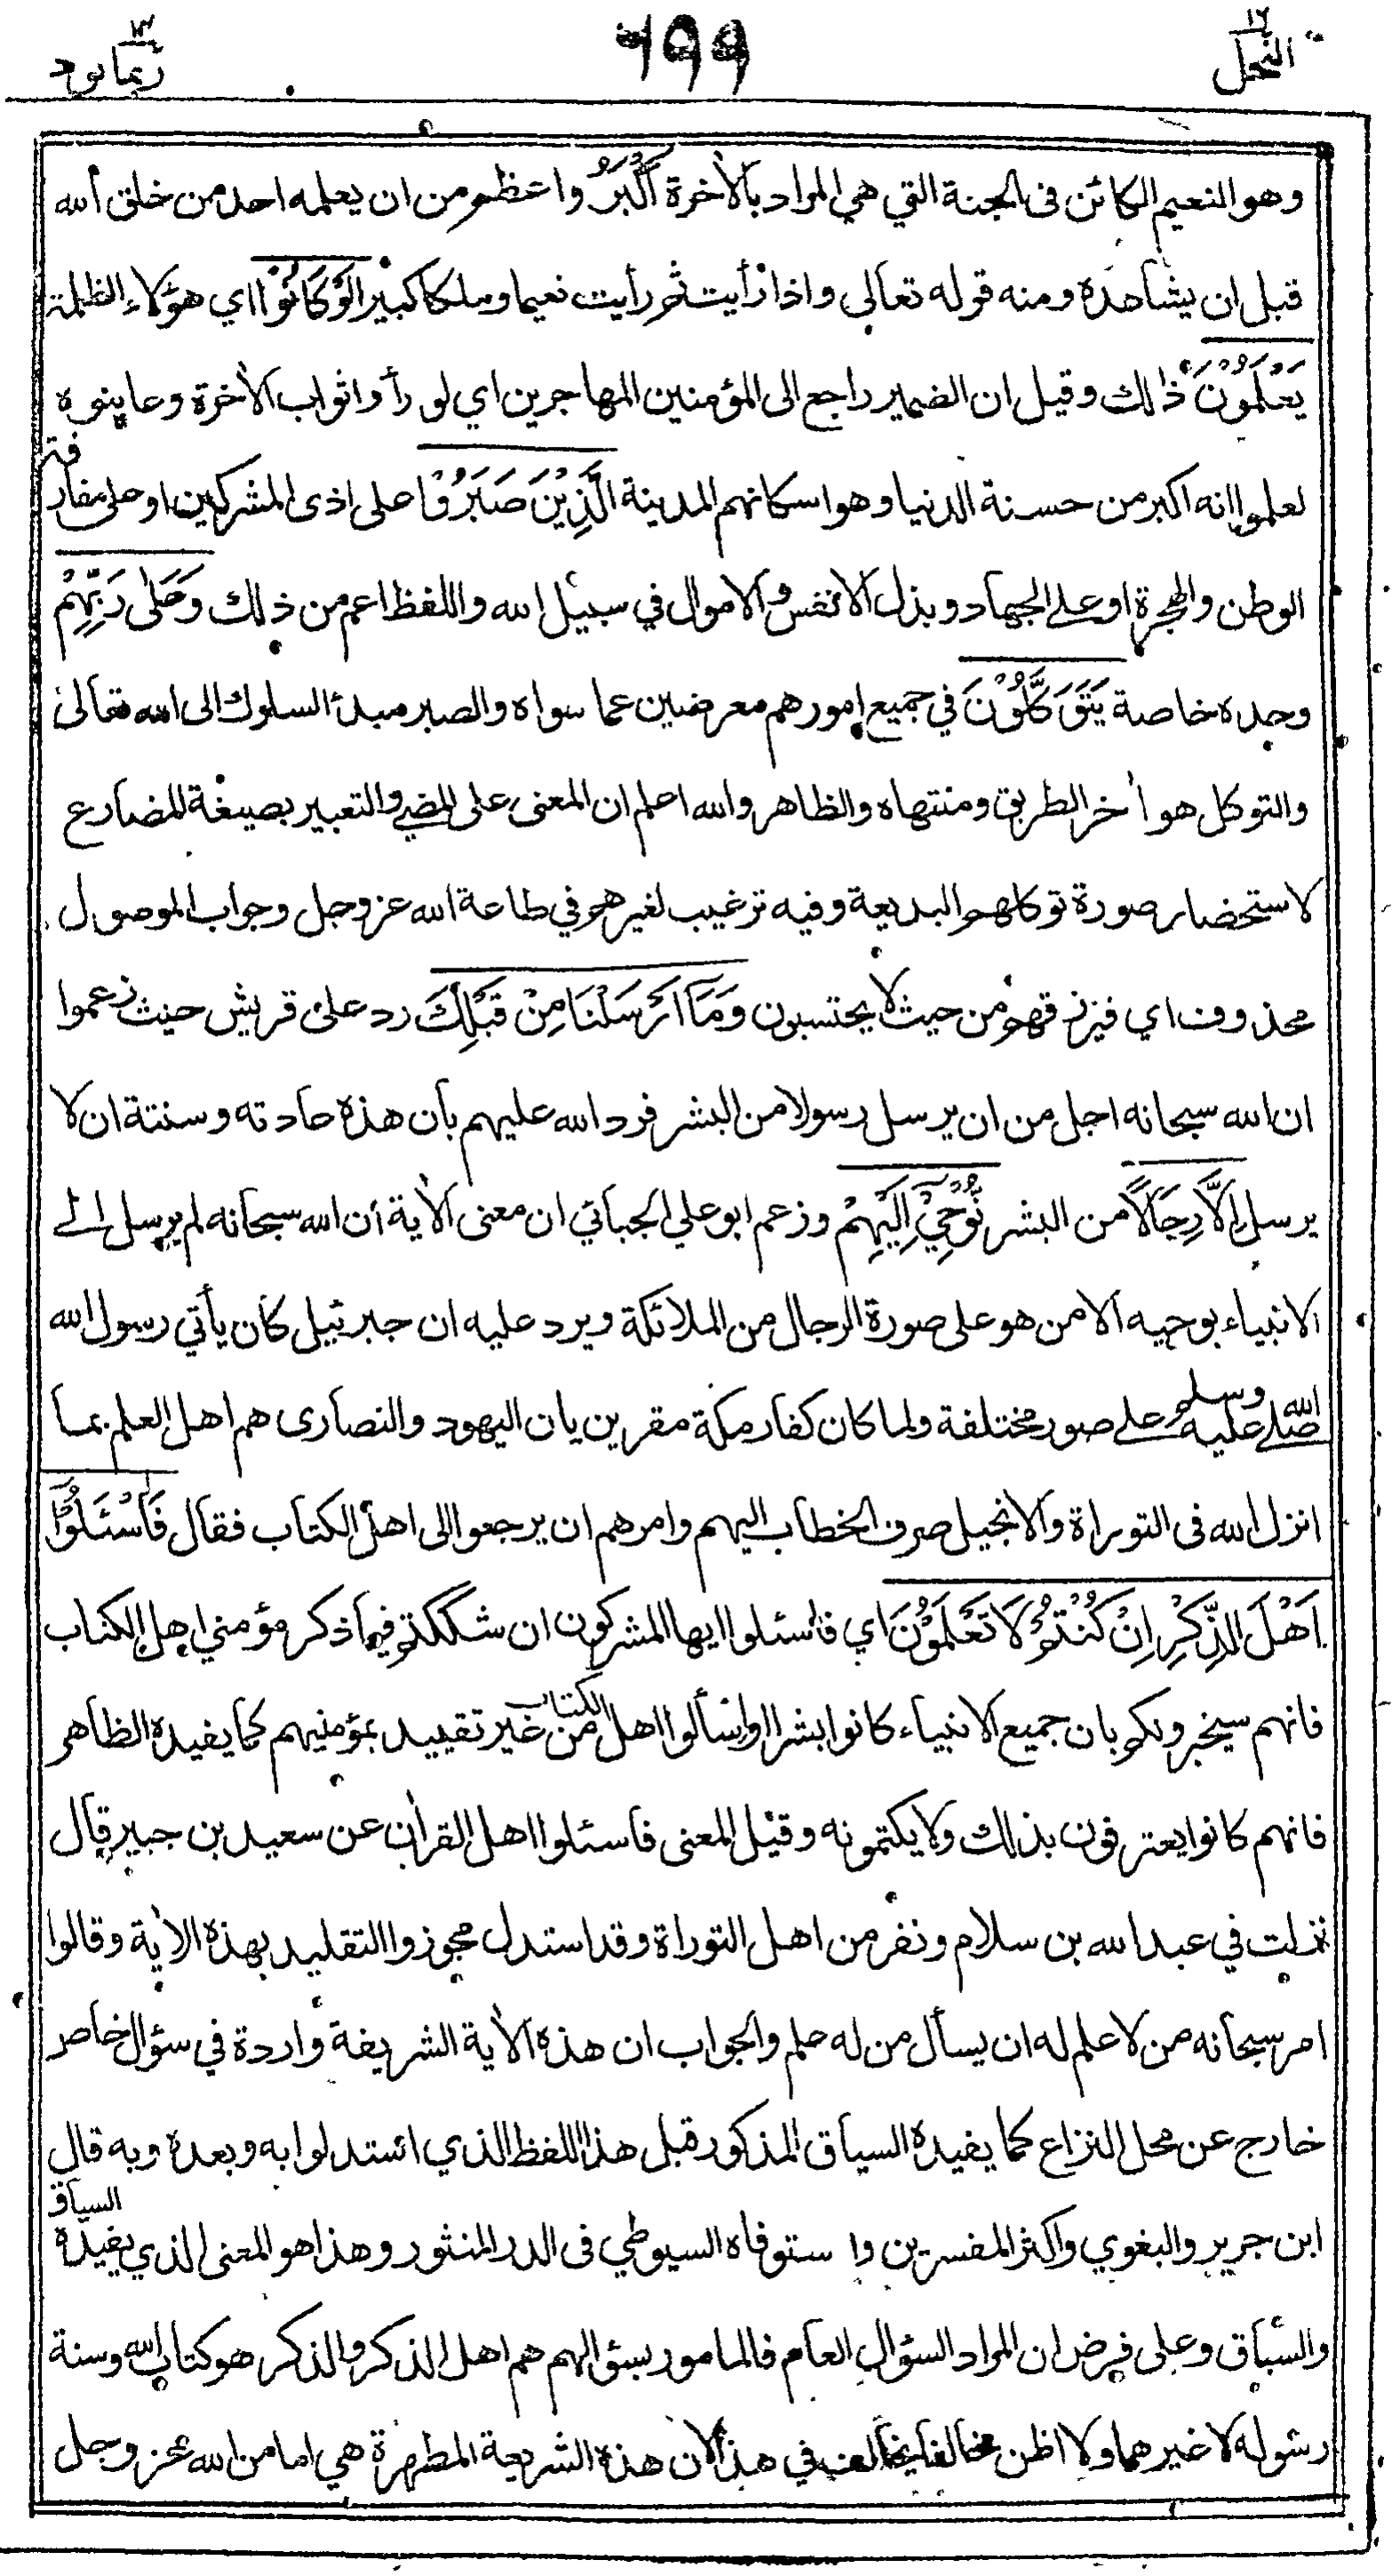 النحل ١٦
٦٩٩
ربما يود ١٤
وهو النعيم الكائن فى الجنة التي هي المراد بالاٰخرة اَكْبَرُ واعظم من ان يعلمه احد من خلق الله
قبل ان يشاهده ومنه قوله تعالى واذا رأيت ثم رأيت نعيما وملكا كبيرا لَوْ كَانُوْا اي هؤلاء الظلمة
يَعْلَمُوْنَ ذلك وقيل ان الضمير راجع الى المؤمنين المهاجرين اي لو رأوا ثواب الاٰخرة وعاينوه
لعلموا انه اكبر من حسنة الدنيا وهو اسكانهم المدينة الَّذِيْنَ صَبَرُوْا على اذى المشركين او على مفارقة
الوطن والهجرة او على الجهاد وبذل الانفس والاموال في سبيل الله واللفظ اعم من ذلك وَعَلٰى رَبِّهِمْ
وحده خاصة يَتَوَكَّلُوْنَ في جميع امورهم معرضين عما سواه والصبر مبدئ السلوك الى الله تعالى
والتوكل هو اٰخر الطريق ومنتهاه والظاهر والله اعلم ان المعنى على المضي والتعبير بصيغة المضارع
لاستحضار صورة توكلهم البديعة وفيه ترغيب لغيرهم في طاعة الله عز وجل وجواب الموصول
محذوف اي فيرزقهم من حيث لا يحتسبون وَمَآ اَرْسَلْنَا مِنْ قَبْلِكَ رد على قريش حيث زعموا
ان الله سبحانه اجل من ان يرسل رسولا من البشر فرد الله عليهم بأن هذه عادته وسنته ان لا
يرسل اِلَّا رِجَالًا من البشر نُّوْحِيْٓ اِلَيْهِمْ وزعم ابو علي الجبائي ان معنى الاٰية أن الله سبحانه لم يرسل الى
الانبياء بوحيه الا من هو على صورة الرجال من الملائكة ويرد عليه ان جبرئيل كان يأتي رسول الله
صلى الله عليه وسلم على صور مختلفة ولما كان كفار مكة مقرين بان اليهود والنصارى هم اهل العلم بما
انزل الله فى التوراة والانجيل صرف الخطاب اليهم وامرهم ان يرجعوا الى اهل الكتاب فقال فَاسْئَلُوْٓا
اَهْلَ الذِّكْرِ اِنْ كُنْتُمْ لَا تَعْلَمُوْنَ اي فاسئلوا ايها المشركون ان شككتم فيما ذكر مؤمني اهل الكتاب
فانهم سيخبرونكم بان جميع الانبياء كانوا بشرا او اسألوا اهل الكتاب من غير تقييد بمؤمنيهم كما يفيده الظاهر
فانهم كانوا يعترفون بذلك ولا يكتمونه وقيل المعنى فاسئلوا اهل القراٰن عن سعيد بن جبير قال
نزلت في عبد الله بن سلام ونفر من اهل التوراة وقد استدل مجوزوا التقليد بهذه الاٰية وقالوا
امر سبحانه من لا علم له ان يسأل من له علم والجواب ان هذه الاٰية الشريفة واردة في سؤال خاص
خارج عن محل النزاع كما يفيده السياق المذكور قبل هذا اللفظ الذي استدلوا به وبعده وبه قال
ابن جرير والبغوي واكثر المفسرين واستوفاه السيوطي فى الدر المنثور وهذا هو المعنى الذي يفيده السياق
والسباق وعلى فرض ان المراد السؤال العام فالمامور بسؤالهم هم اهل الذكر والذكر هو كتاب الله وسنة
رسوله لا غيرهما ولا اظن مخالفا يخالف في هذا لان هذه الشريعة المطهرة هي اما من الله عز وجل